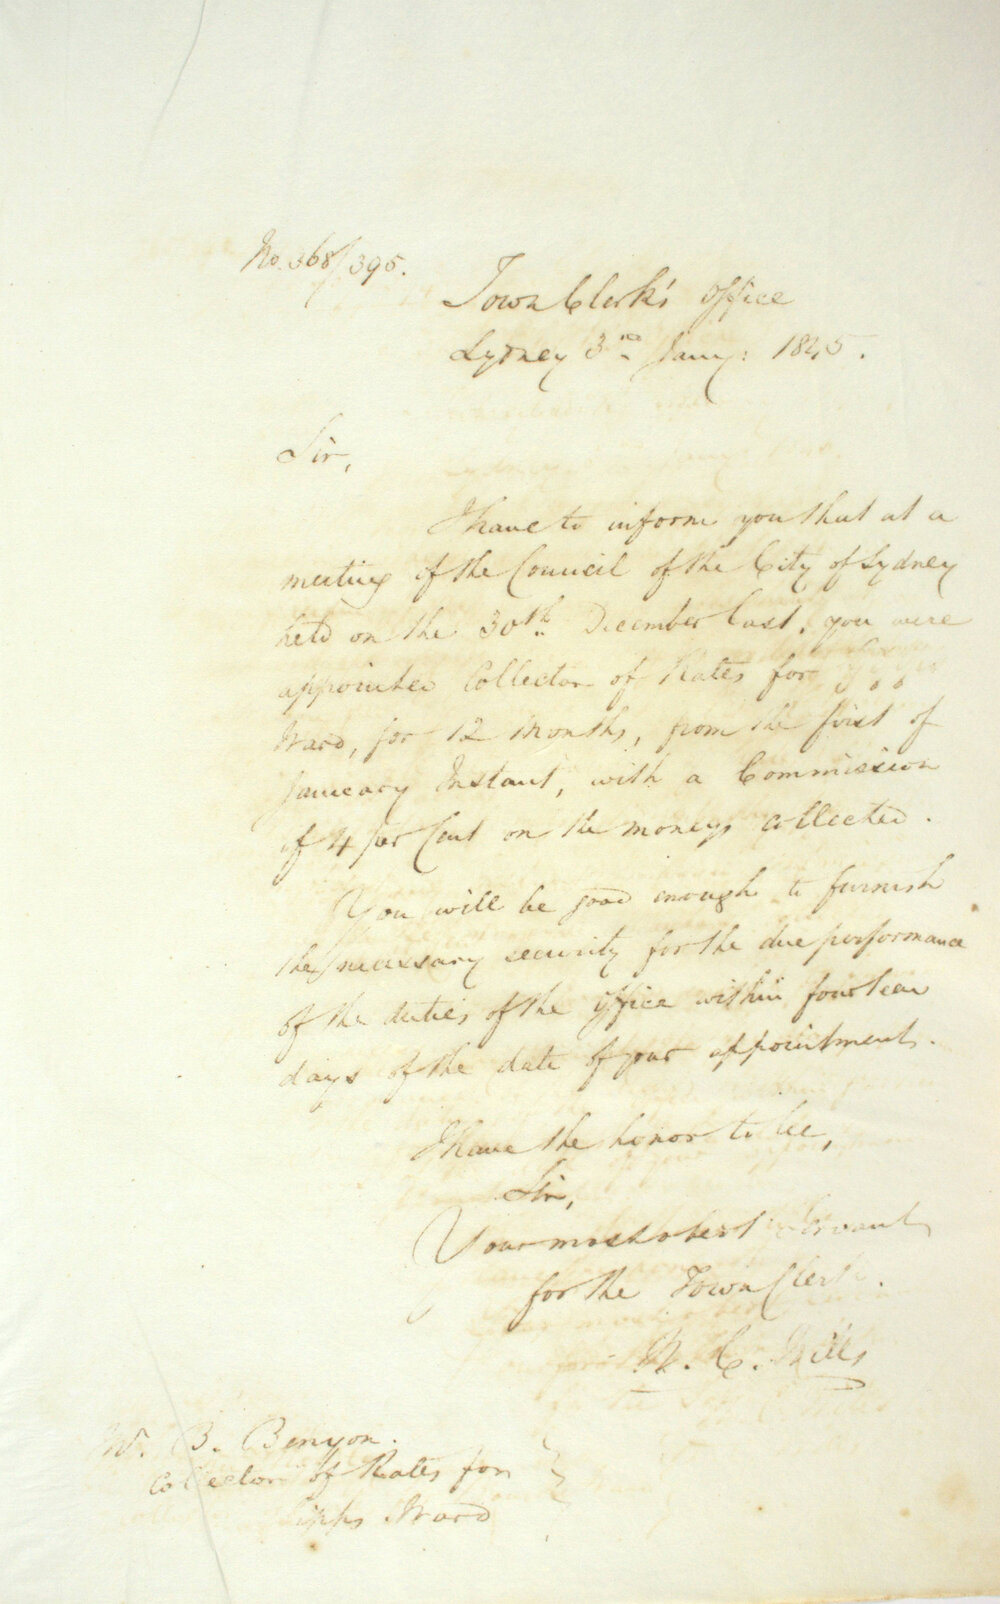 No. 368/395.
Town Clerk's Office
Sydney 3rd Jany: 1845.
Sir,
I have to inform you that at a
meeting of the Council of the City of Sydney
held on the 30th December last, you were
appointed Collector of Rates for Gipps
Ward, for 12 Months, from the first of
January Instant, with a Commission
of 4 per Cent on the moneys collected.
You will be good enough to furnish
the necessary security for the due performance
of the duties of the Office within fourteen
days of the date of your appointment.
I have the honor to be,
Sir,
Your most obedt Servant
for the Town Clerk.
W. C. Wills
B. Benyon.
Collector of Rates for
Gipps Ward